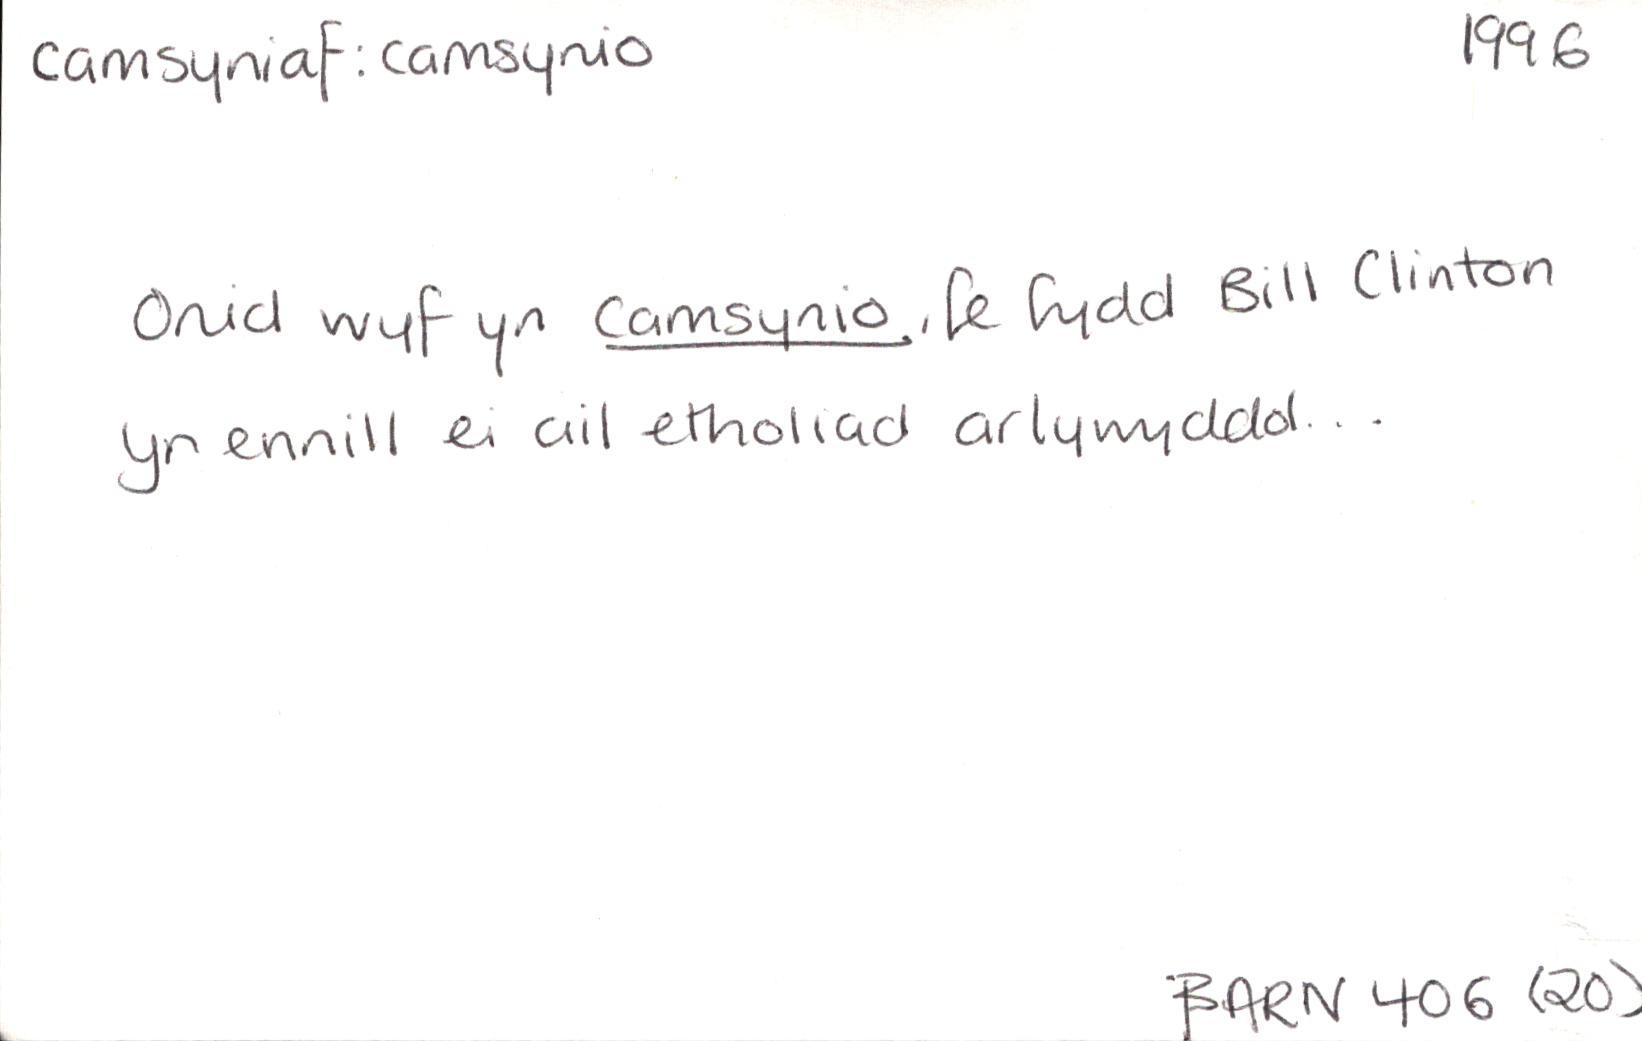 camsyniaf: camsynio 1996
Onid wyf yn camsynio, fe fydd Bill Clinton
yn ennill ei ail etholiad arlywyddol...
BARN 406 (20)